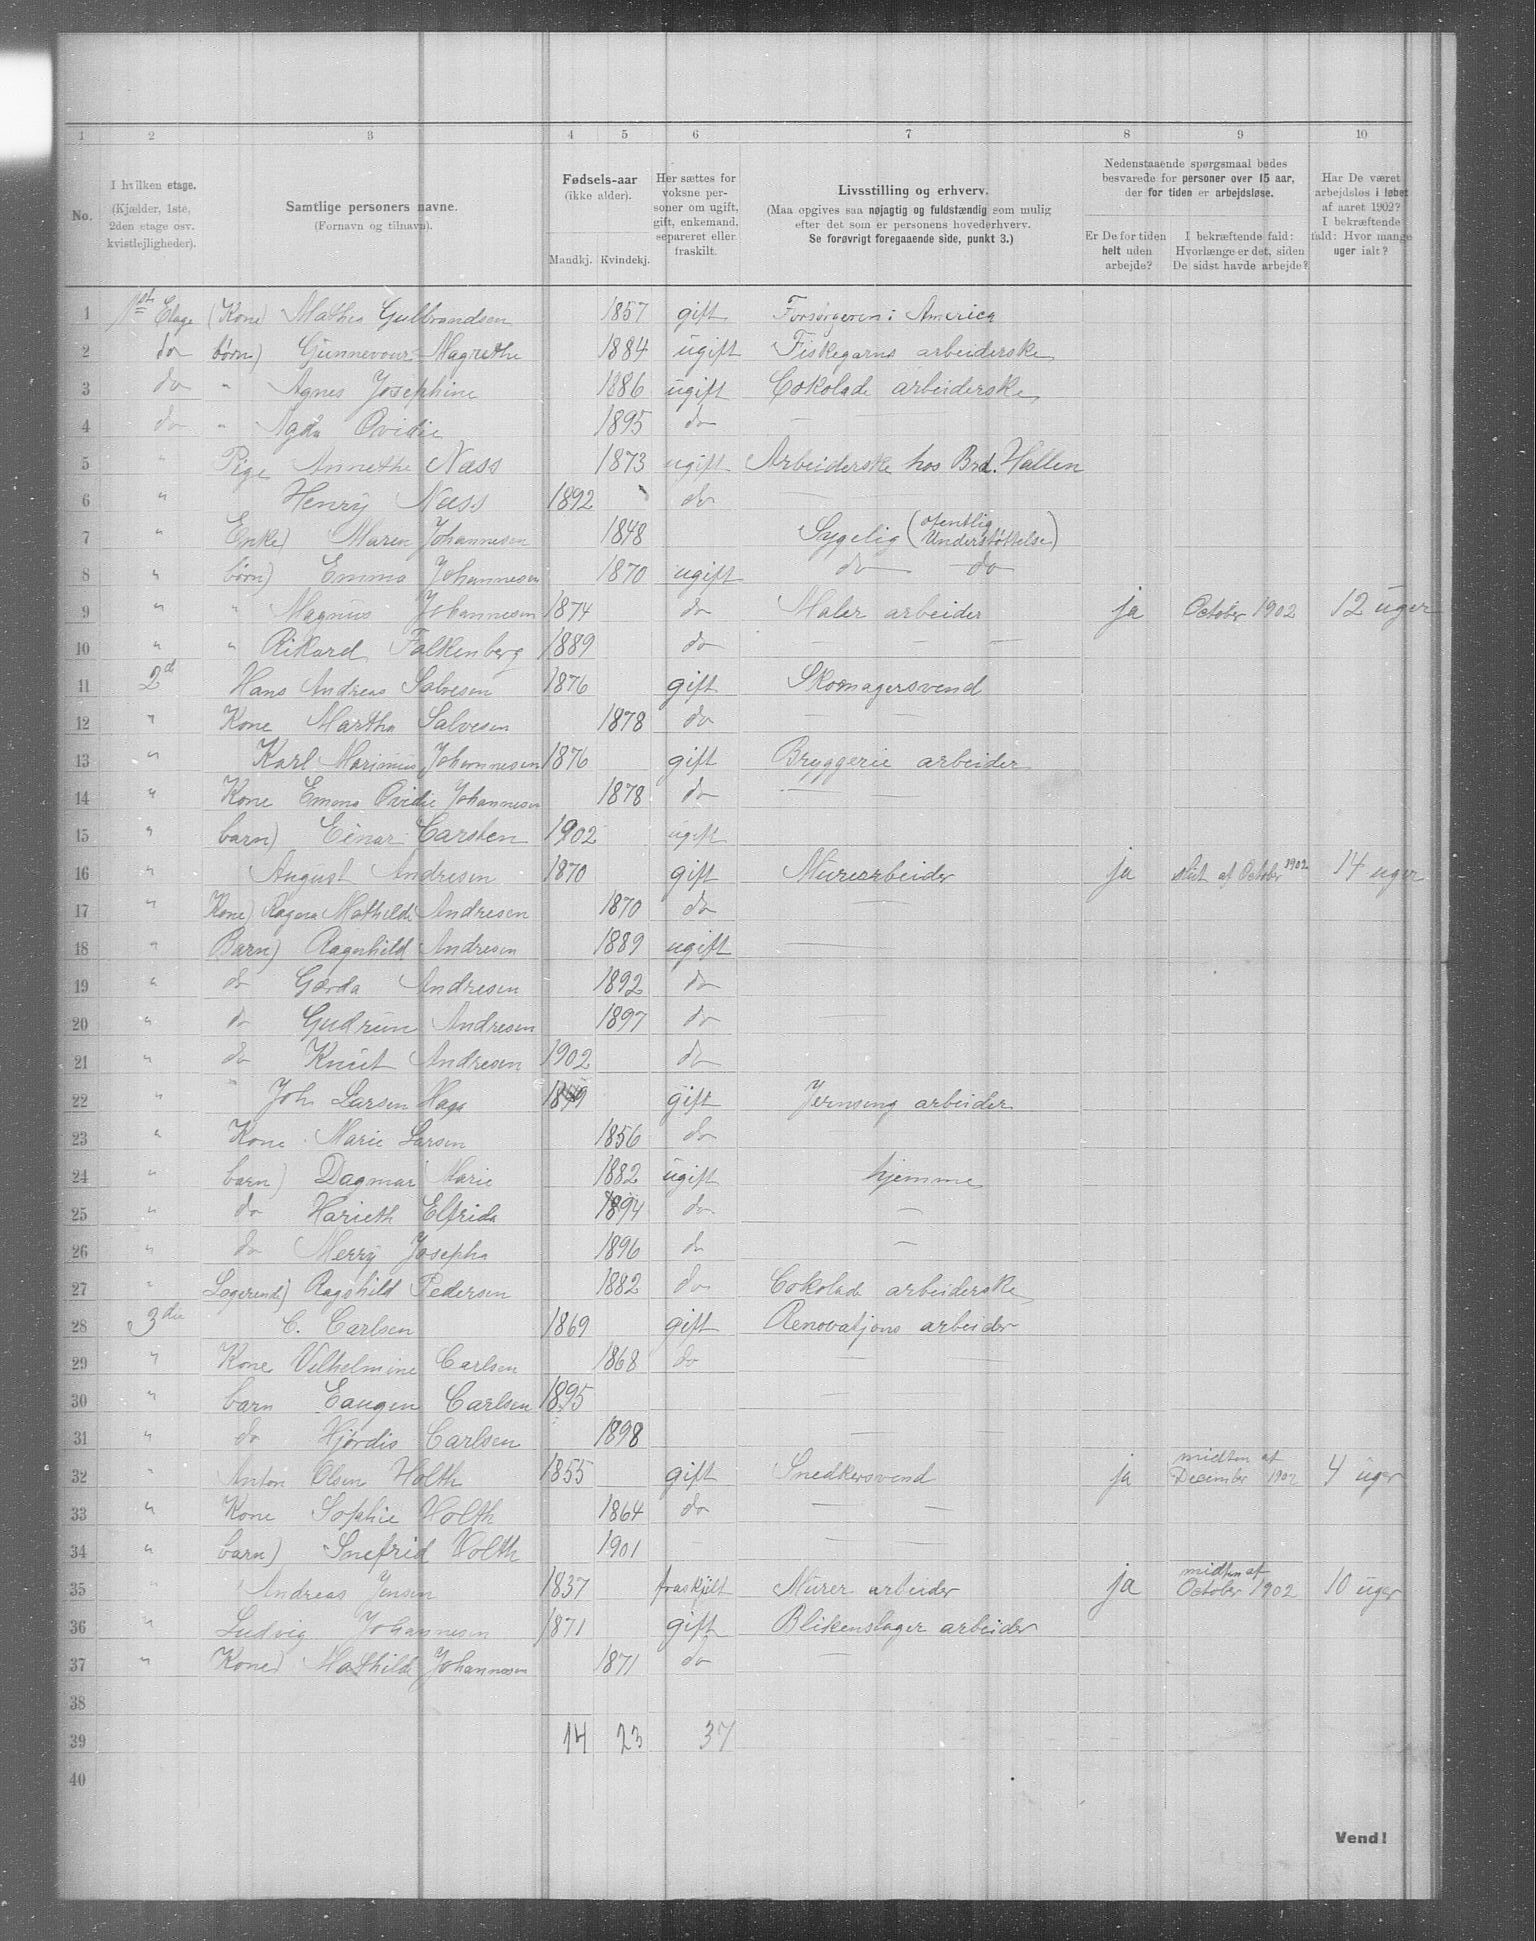 1 2 3 4 5 6 7 8 9 10
No.
I hvilken etage. (Kjælder, 1ste, 2den etage osv. kvistlejligheder).
Samtlige personers navne. (Fornavn og tilnavn).
Fødsels-aar (ikke alder). Mandkj. Kvindekj.
Her sættes for voksne personer om ugift, gift, enkemand, separeret eller fraskilt.
Livsstilling og erhverv. (Maa opgives saa nøjagtig og fuldstændig som mulig efter det som er personens hovederhverv. Se forøvrigt foregaaende side, punkt 3.)
Nedenstaaende spørgsmaal bedes besvarede for personer over 15 aar, der for tiden er arbejdsløse.
Er De for tiden helt uden arbejde?
I bekræftende fald: Hvorlænge er det, siden De sidst havde arbejde?
Har De været arbejdsløs i løbet af aaret 1902? I bekræftende fald: Hvor mange uger ialt?
1 1ste Etage (Kone) Mathea Gulbrandsen 1857 gift Forsørgeren i America
2 do børn) Gunnevour Magrethe 1884 ugift Fiskegarns arbeiderske
3 do " Agnes Josephine 1886 ugift Cokolade arbeiderske
4 do " Agda Ovidie 1895 do —
5 " Pige Annethe Næss 1873 ugift Arbeiderske hos Brd. Hallen
6 " Henry Næss 1892 do —
7 " Enke) Maren Johannesen 1848 Sygelig (ofentlig Understøttelse)
8 " børn) Emma Johannesen 1870 ugift do do
9 " " Magnus Johannesen 1874 do Maler arbeider ja October 1902 12 uger
10 " " Rikard Falkenberg 1889 do — — —
11 2d Hans Andreas Salvesen 1876 gift Skomagersvend
12 " Kone Martha Salvesen 1878 do — —
13 " Karl Marinius Johannesen 1876 gift Bryggerie arbeider
14 " Kone Emma Ovidie Johannesen 1878 do — —
15 " barn) Einar Carsten 1902 ugift
16 " August Andresen 1870 gift Murerarbeider ja slut af October 1902 14 uger
17 " Kone) Ragna Mathilde Andresen 1870 do —
18 " Barn) Ragnhild Andresen 1889 ugift —
19 " do Gerda Andresen 1892 do —
20 " do Gudrun Andresen 1897 do —
21 " do Knut Andresen 1902 do
22 " Joh. Larsen Haga gift Jernseng arbeider
23 " Kone Marie Larsen 1856 do
24 " barn) Dagmar Marie 1882 ugift hjemme
25 " do Harieth Elfrida 1894 do —
26 " do Merry Josepha 1896 do —
27 " Logerende) Ragnhild Pedersen 1882 do Cokolade arbeiderske
28 3die C. Carlsen 1869 gift Renovatjons arbeider
29 " Kone Vilhelmine Carlsen 1868 do — —
30 " barn Eaugen Carlsen 1895 —
31 " do Hjørdis Carlsen 1898 —
32 " Anton Olsen Holth 1855 gift Snedkersvend ja midten af December 1902 4 uger
33 " Kone Sophie Holth 1864 do — —
34 " barn) Snefrid Holth 1901 — —
35 " Andreas Jensen 1837 fraskjilt Murer arbeider ja midten af October 1902 10 uger
36 " Ludvig Johannesen 1871 gift Blikenslager arbeider
37 " Kone) Mathilde Johannesen 1871 do —
38
39 14 23 37
40
Vend!